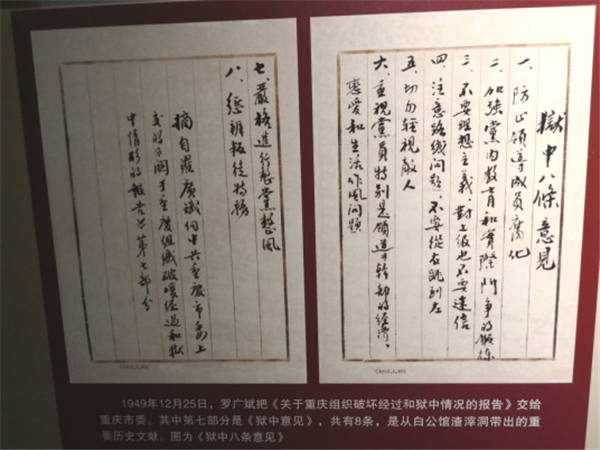 獄中八條意見
一、防止領導成員腐化
二、加強黨内教育和實際鬥争的鍛煉
三、不要理想主義，對上級也不要迷信
四、注意路綫問題，不要從右跳到左
五、切勿輕視敵人
六、重視黨員特别是領導幹部的經濟、
戀愛和生活作風問題
七、嚴格進行整黨整風
八、懲辦叛徒特務
摘自羅廣斌向中共重慶市委上
交的《關于重慶組織破壞經過和獄
中情形的報告》第七部分
1949年12月25日，罗广斌把《关于重庆组织破坏经过和狱中情况的报告》交给
重庆市委。其中第七部分是《狱中意见》，共有8条，是从白公馆渣滓洞带出的重
要历史文献。图为《狱中八条意见》